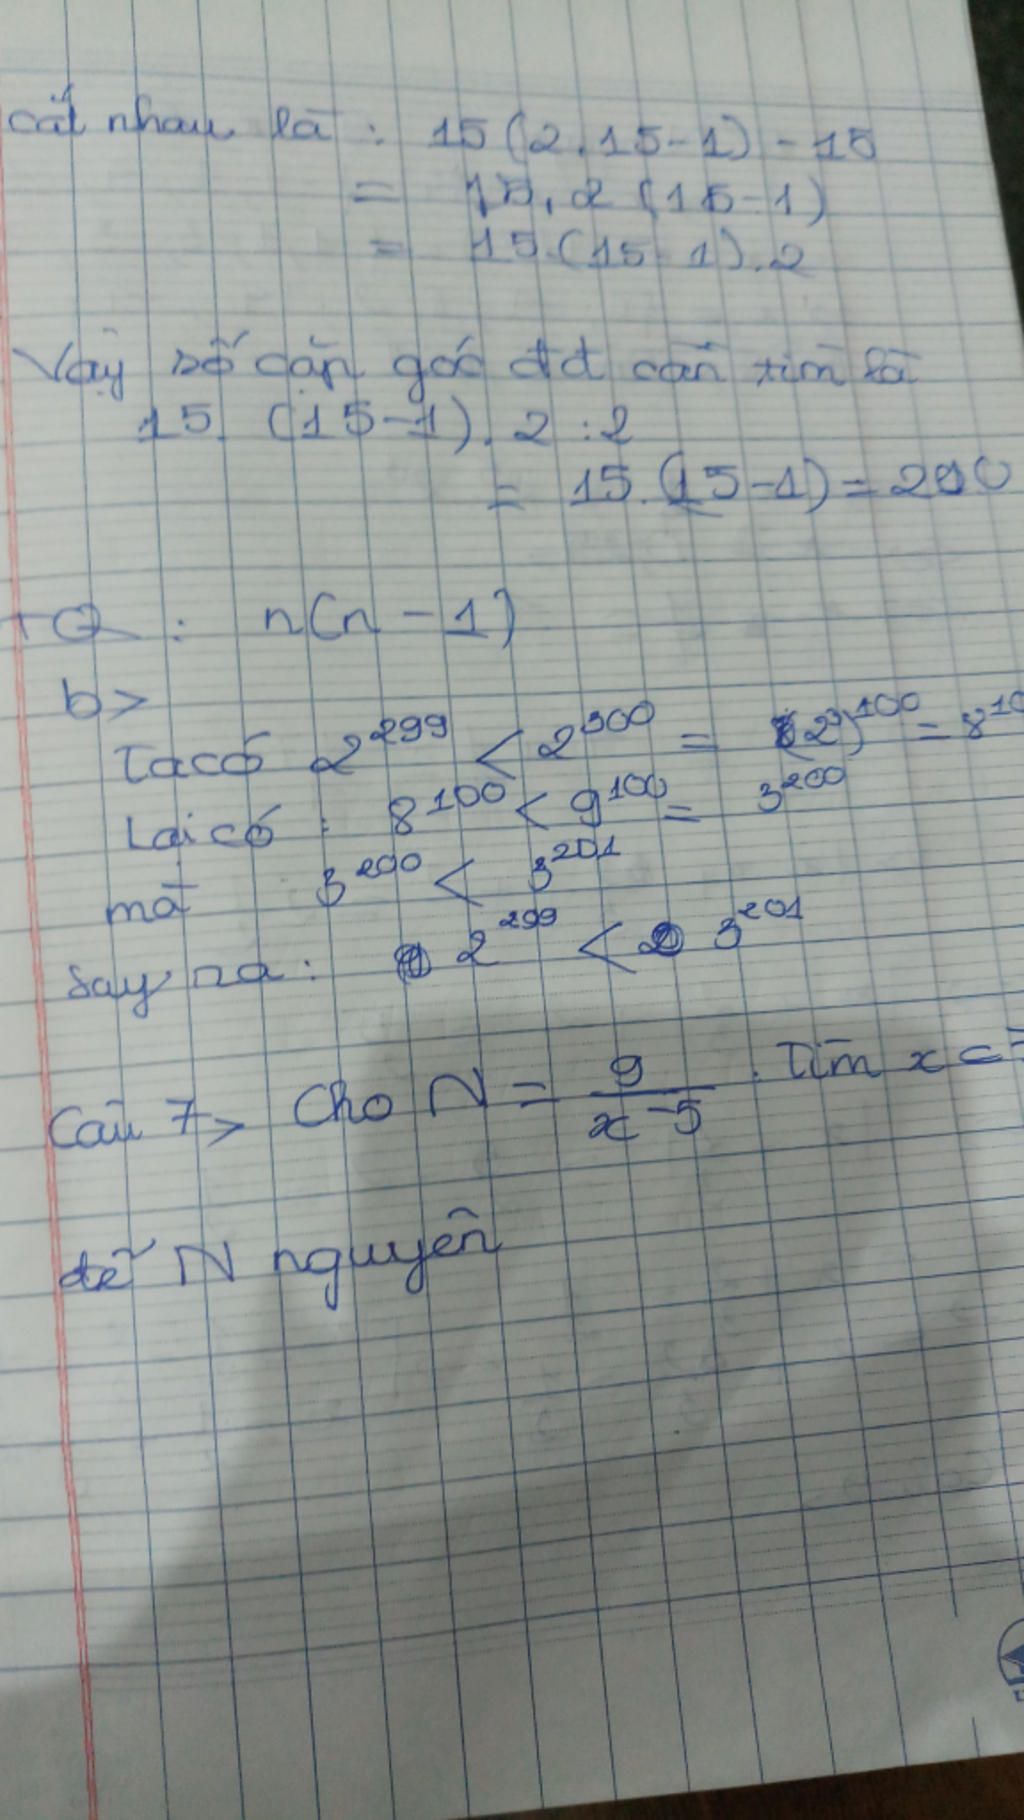 cắt nhau là : 15(2.15-1) - 15
= 15.2(15-1)
= 15.(15-1).2
Vậy số cặp góc đđ cần tìm là
15.(15-1).2 :2
= 15.(15-1) = 210
TQ : n(n-1)
b>
Ta có 2^299 < 2^300 = (2^3)^100 = 8^10
Lại có : 8^100 < 9^100 = 3^200
mà 3^200 < 3^201
Say ra : 2^299 < 3^201
Câu 7> Cho N = 9/(x-5) . Tìm x
để N nguyên